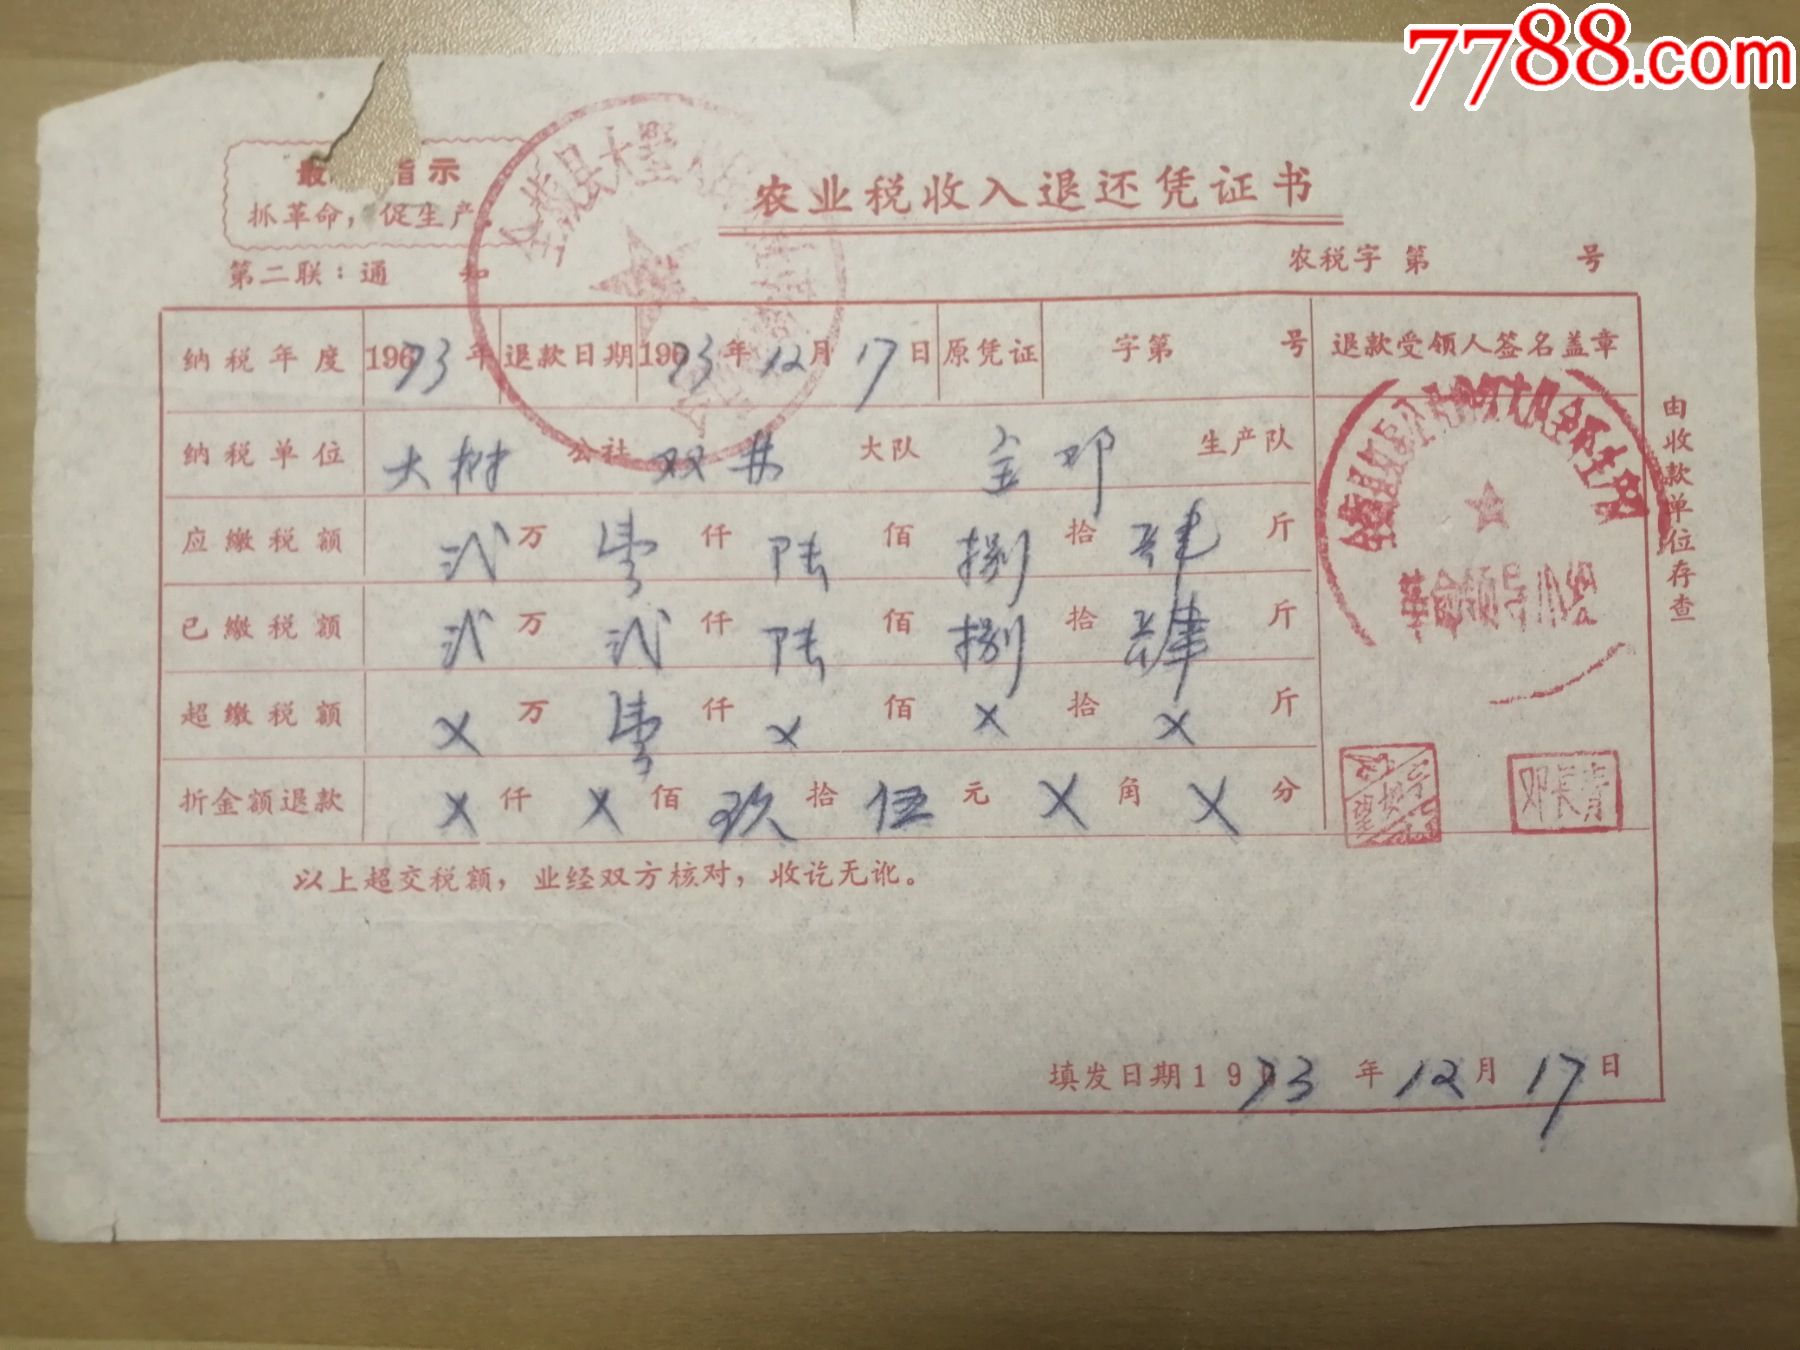 7788.com
最 指示
抓革命，促生产。
农业税收入退还凭证书
第二联：通 知
农税字 第 号
纳税年度 1973年 退款日期 1973年12月17日 原凭证 字第 号 退款受领人签名盖章
纳税单位 大树 公社 双林 大队 金邓 生产队
应缴税额 贰万壹仟陆佰捌拾肆斤
已缴税额 贰万贰仟陆佰捌拾肆斤
超缴税额 X万壹仟X佰X拾X斤
折金额退款 X仟X佰玖拾伍元X角X分
革命领导小组
邓长青
由收款单位存查
以上超交税额，业经双方核对，收讫无讹。
填发日期1973年12月17日